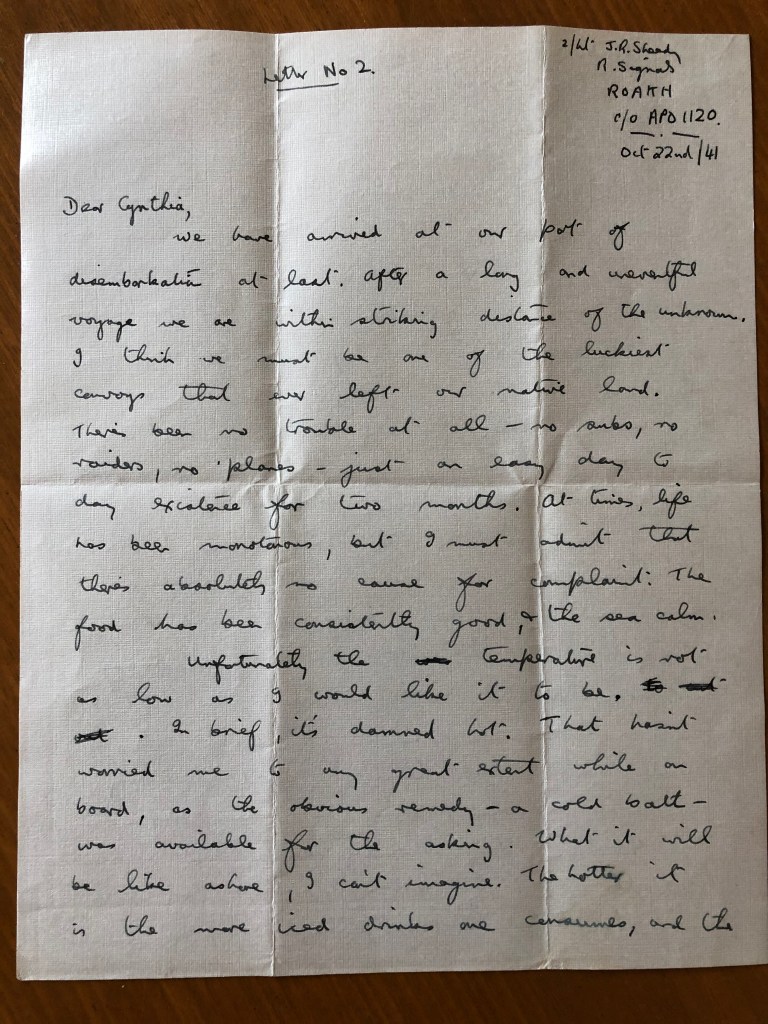 Letter No 2.
2/Lt J.R. Sheedy
R. Signals
ROAKH
c/o APO 1120.
Oct 22nd/41
Dear Cynthia,
we have arrived at our port of
disembarkation at last. After a long and uneventful
voyage we are within striking distance of the unknown.
I think we must be one of the luckiest
convoys that ever left our native land.
There's been no trouble at all - no subs, no
raiders, no 'planes - just an easy day to
day existence for two months. At times, life
has been monotonous, but I must admit that
there's absolutely no cause for complaint. The
food has been consistently good, & the sea calm.
Unfortunately the temperature is not
as low as I would like it to be.
. In brief, it's damned hot. That hasn't
worried me to any great extent while on
board, as the obvious remedy - a cold bath -
was available for the asking. What it will
be like ashore, I can't imagine. The hotter it
is the more iced drinks one consumes, and the